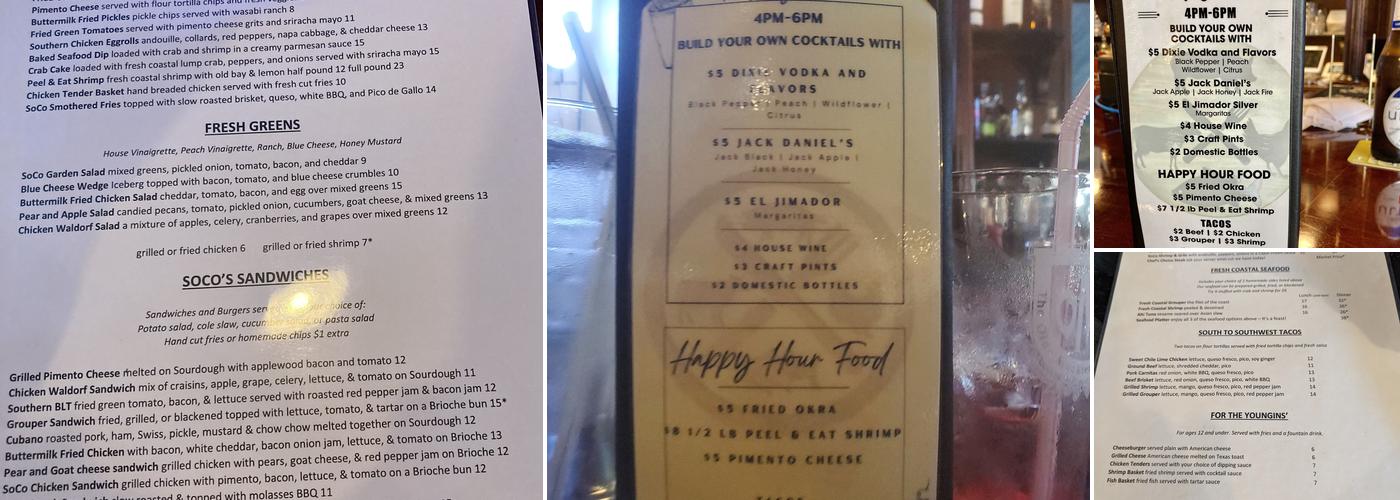 Pimento Cheese served with flour tortilla chips and
Buttermilk Fried Pickles pickle chips served with wasabi ranch 8
Fried Green Tomatoes served with pimento cheese grits and sriracha mayo 11
Southern Chicken Eggrolls andouille, collards, red peppers, napa cabbage, & cheddar cheese 13
Baked Seafood Dip loaded with crab and shrimp in a creamy parmesan sauce 15
Crab Cake loaded with fresh coastal lump crab, peppers, and onions served with sriracha mayo 15
Peel & Eat Shrimp fresh coastal shrimp with old bay & lemon half pound 12 full pound 23
Chicken Tender Basket hand breaded chicken served with fresh cut fries 10
SoCo Smothered Fries topped with slow roasted brisket, queso, white BBQ, and Pico de Gallo 14
FRESH GREENS
House Vinaigrette, Peach Vinaigrette, Ranch, Blue Cheese, Honey Mustard
SoCo Garden Salad mixed greens, pickled onion, tomato, bacon, and cheddar 9
Blue Cheese Wedge Iceberg topped with bacon, tomato, and blue cheese crumbles 10
Buttermilk Fried Chicken Salad cheddar, tomato, bacon, and egg over mixed greens 15
Pear and Apple Salad candied pecans, tomato, pickled onion, cucumbers, goat cheese, & mixed greens 13
Chicken Waldorf Salad a mixture of apples, celery, cranberries, and grapes over mixed greens 12
grilled or fried chicken 6 grilled or fried shrimp 7*
SOCO'S SANDWICHES
Sandwiches and Burgers ser our choice of:
Potato salad, cole slaw, cucum or pasta salad
Hand cut fries or homemade chips $1 extra
Grilled Pimento Cheese melted on Sourdough with applewood bacon and tomato 12
Chicken Waldorf Sandwich mix of craisins, apple, grape, celery, lettuce, & tomato on Sourdough 11
Southern BLT fried green tomato, bacon, & lettuce served with roasted red pepper jam & bacon jam 12
Grouper Sandwich fried, grilled, or blackened topped with lettuce, tomato, & tartar on a Brioche bun 15*
Cubano roasted pork, ham, Swiss, pickle, mustard & chow chow melted together on Sourdough 12
Buttermilk Fried Chicken with bacon, white cheddar, bacon onion jam, lettuce, & tomato on Brioche 13
Pear and Goat cheese sandwich grilled chicken with pears, goat cheese, & red pepper jam on Brioche 12
SoCo Chicken Sandwich grilled chicken with pimento, bacon, lettuce, & tomato on a Brioche bun 12
roasted & topped with molasses BBQ 11
4PM-6PM
BUILD YOUR OWN COCKTAILS WITH
$5 DIXIE VODKA AND
FLAVORS
Black Pepper | Peach | Wildflower |
Citrus
$5 JACK DANIEL'S
Jack Black | Jack Apple |
Jack Honey
$5 EL JIMADOR
Margaritas
$4 HOUSE WINE
$3 CRAFT PINTS
$2 DOMESTIC BOTTLES
Happy Hour Food
$5 FRIED OKRA
$8 1/2 LB PEEL & EAT SHRIMP
$5 PIMENTO CHEESE
TACOS
4PM-6PM
BUILD YOUR OWN
COCKTAILS WITH
$5 Dixie Vodka and Flavors
Black Pepper | Peach
Wildflower | Citrus
$5 Jack Daniel's
Jack Apple | Jack Honey | Jack Fire
$5 El Jimador Silver
Margaritas
$4 House Wine
$3 Craft Pints
$2 Domestic Bottles
HAPPY HOUR FOOD
$5 Fried Okra
$5 Pimento Cheese
$7 1/2 lb Peel & Eat Shrimp
TACOS
$2 Beef | $2 Chicken
$3 Grouper | $3 Shrimp
Market Price*
FRESH COASTAL SEAFOOD
Includes your choice of 2 homemade sides listed above
Our seafood can be prepared grilled, fried, or blackened
Try it stuffed with crab and shrimp for $6
Lunch Dinner
Fresh Coastal Grouper the filet of the coast 17
Fresh Coastal Shrimp peeled & deveined 16
Ahi Tuna sesame seared over Asian slaw 16
Seafood Platter enjoy all 3 of the seafood options above – It's a feast!
SOUTH TO SOUTHWEST TACOS
Two tacos on flour tortillas served with fried tortilla chips and fresh salsa
Sweet Chile Lime Chicken lettuce, queso fresco, pico, soy ginger 12
Ground Beef lettuce, shredded cheddar, pico 11
Pork Carnitas red onion, white BBQ, queso fresco, pico 13
Beef Brisket lettuce, red onion, queso fresco, pico, white BBQ 13
Grilled Shrimp lettuce, mango, queso fresco, pico, red pepper jam 14
Grilled Grouper lettuce, mango, queso fresco, pico, red pepper jam 14
FOR THE YOUNGINS'
For ages 12 and under. Served with fries and a fountain drink.
Cheeseburger served plain with American cheese 6
Grilled Cheese American cheese melted on Texas toast 6
Chicken Tenders served with your choice of dipping sauce 7
Shrimp Basket fried shrimp served with cocktail sauce 7
Fish Basket fried fish served with tartar sauce 7